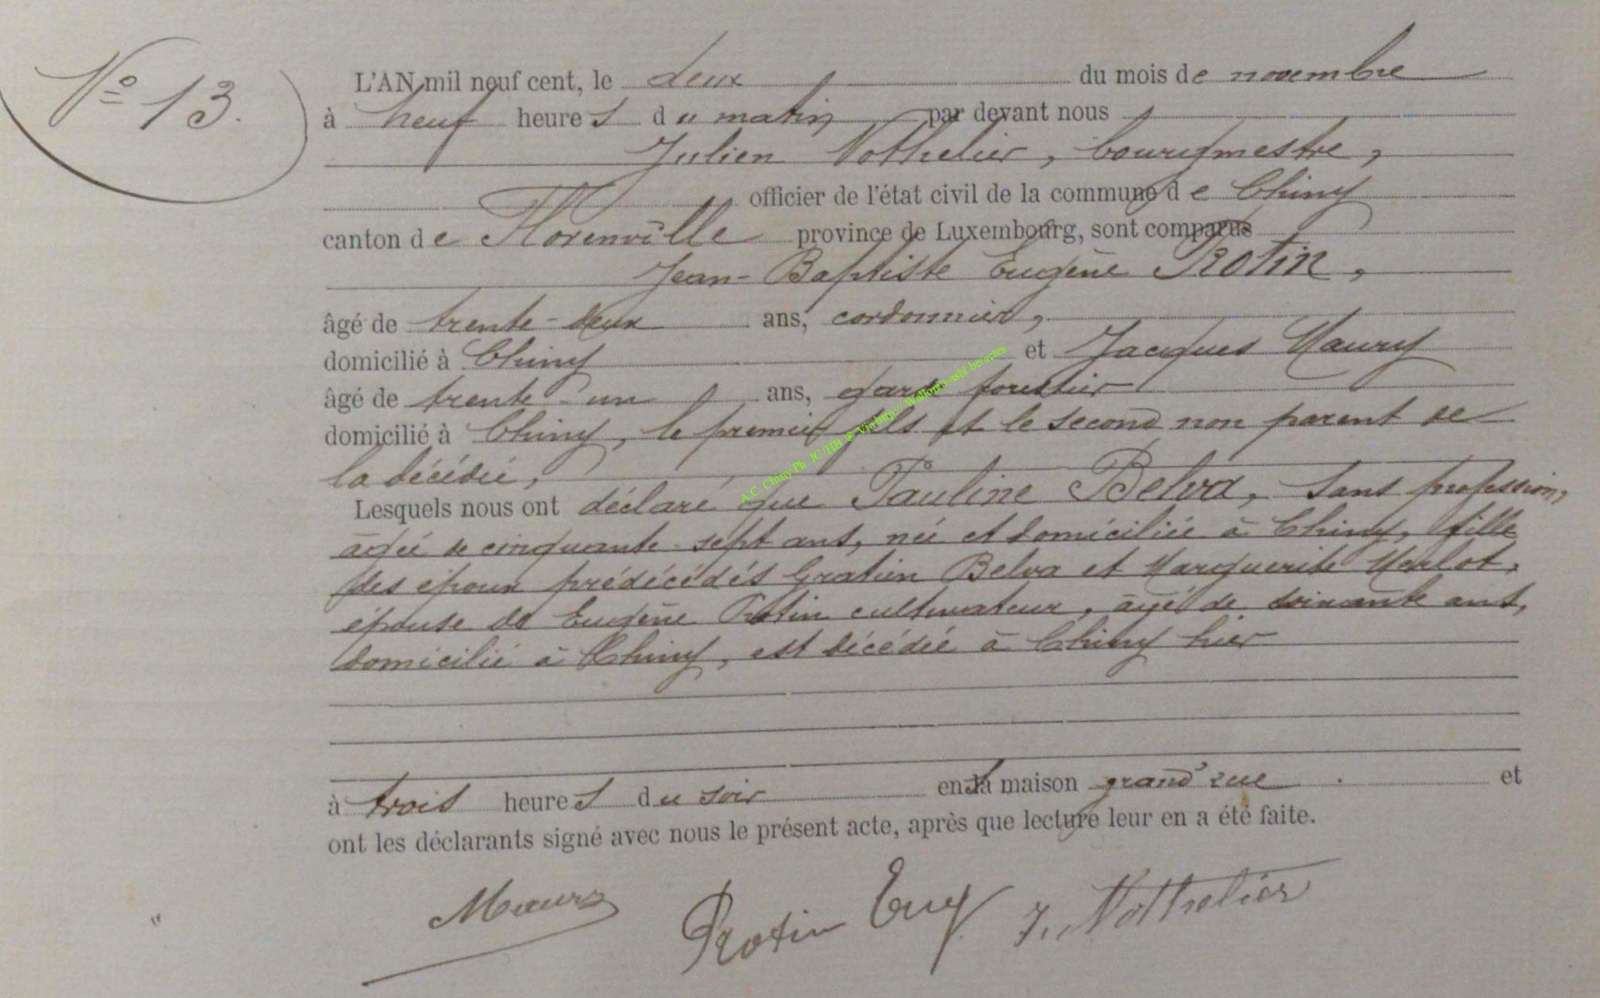 N° 13.
L'AN mil neuf cent, le deux du mois de novembre
à neuf heures du matin par devant nous
Julien Nothelier, bourgmestre,
officier de l'état civil de la commune de Chiny
canton de Florenville province de Luxembourg, sont comparus
Jean-Baptiste Eugène Protin,
âgé de trente-deux ans, cordonnier,
domicilié à Chiny et Jacques Maury
âgé de trente-un ans, garde forestier
domicilié à Chiny, le premier fils et le second non parent de
la décédée,
Lesquels nous ont déclaré que Pauline Belva, sans profession,
âgée de cinquante-sept ans, née et domiciliée à Chiny, fille
des époux prédécédés Gratien Belva et Marguerite Merlot,
épouse de Eugène Protin cultivateur, âgé de soixante ans,
domicilié à Chiny, est décédée à Chiny hier
à trois heures du soir en sa maison grand'rue et
ont les déclarants signé avec nous le présent acte, après que lecture leur en a été faite.
Maury Protin Eug J. Nothelier